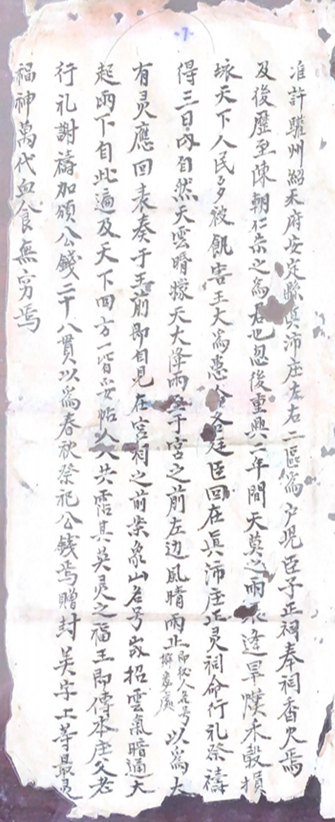 -7-
准許驩州紹禾府安定縣真沛庄左右二區為戶兒臣子正祠奉祠香火焉
及後歷至陳朝仁宗之為君也忽後重興二年間天莫之雨永逢旱熯禾穀損
咏天下人民多被飢害王大為患令各廷臣回在真沛庄正灵祠命行礼祭禱
得三日內自然天雲暗朦天大降雨至于宮之前左边風晴雨止以為大
有灵應回表奏于王前即自見在宮司之前崇象山名号峩招雲氣暗通大
起雨下自此遍及天下四方一皆妥帖人人共霑其英灵之福王即傳本庄父老
行礼謝禱加頒公錢二十八貫以為春秋祭祀公錢焉贈封美字上等最灵
福神萬代血食無穷焉